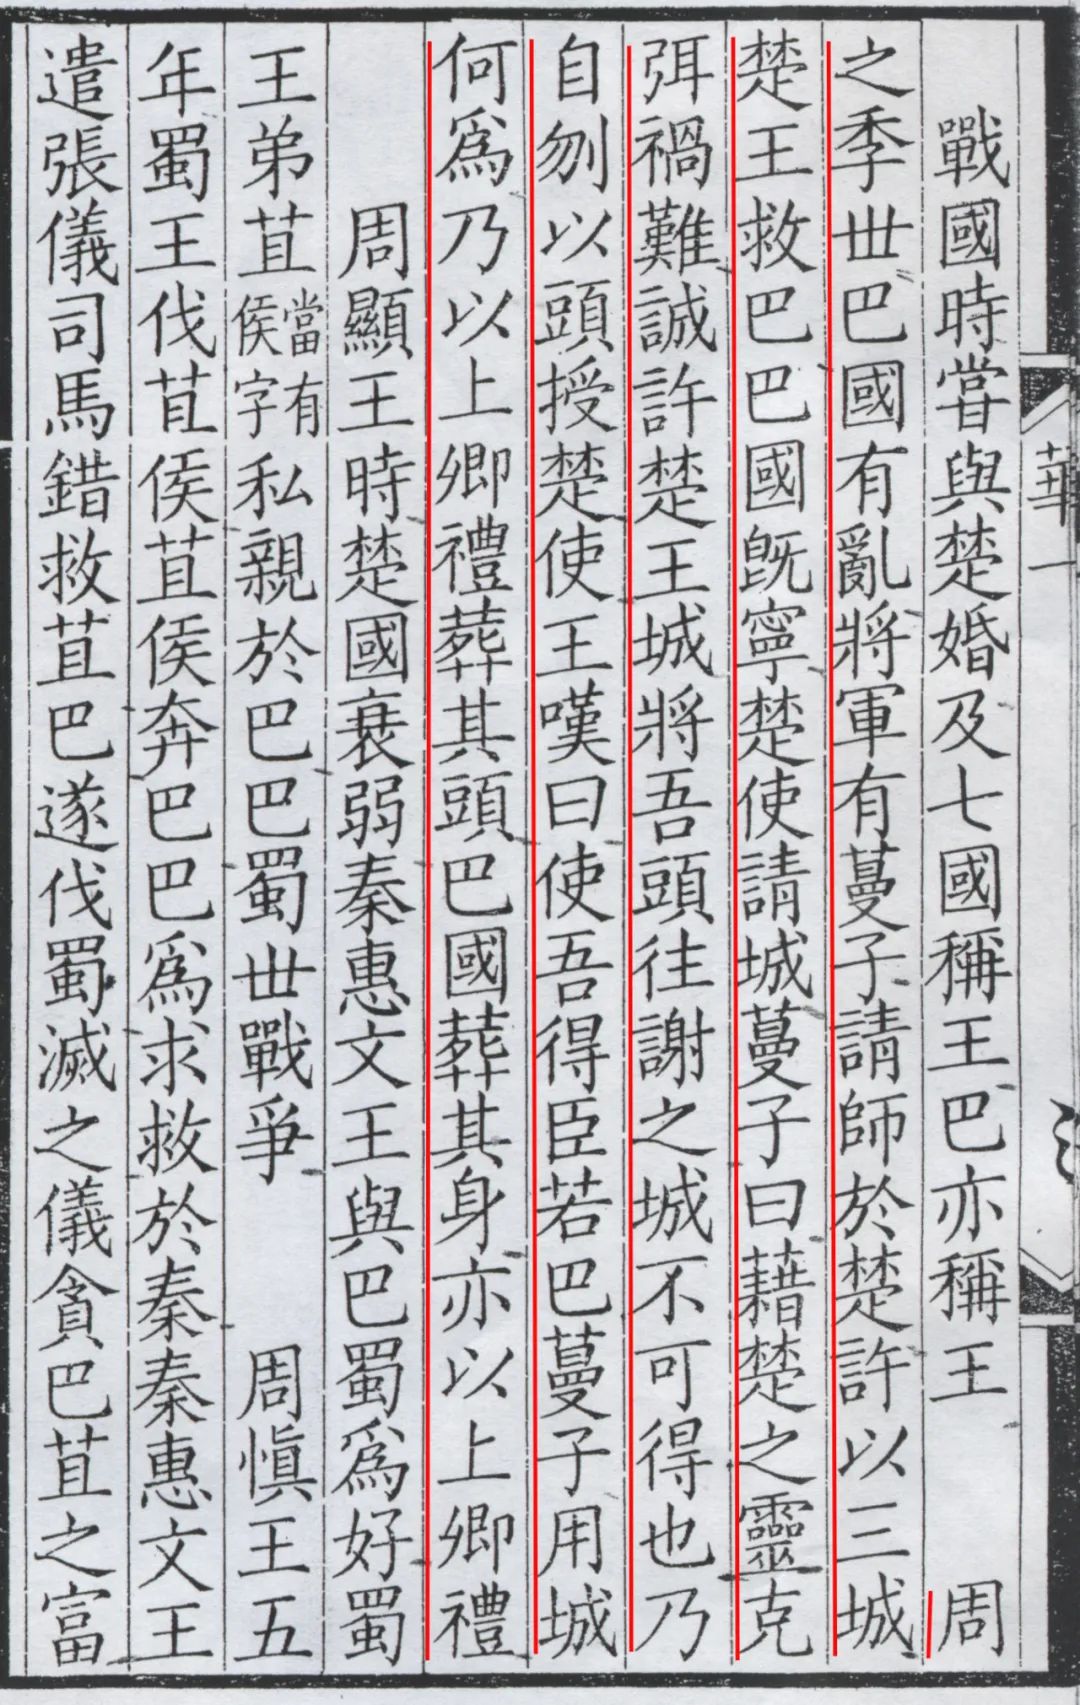 華一
戰國時嘗與楚婚及七國稱王巴亦稱王　周
之季丗巴國有亂將軍有蔓子請師於楚許以三城
楚王救巴巴國既寧楚使請城蔓子曰藉楚之靈克
弭禍難誠許楚王城將吾頭往謝之城不可得也乃
自刎以頭授楚使王嘆曰使吾得臣若巴蔓子用城
何爲乃以上卿禮葬其頭巴國葬其身亦以上卿禮
周顯王時楚國衰弱秦惠文王與巴蜀爲好蜀
王弟苴當有侯字私親於巴巴蜀丗戰爭　周愼王五
年蜀王伐苴侯苴侯奔巴巴爲求救於秦秦惠文王
遣張儀司馬錯救苴巴遂伐蜀滅之儀貪巴苴之富